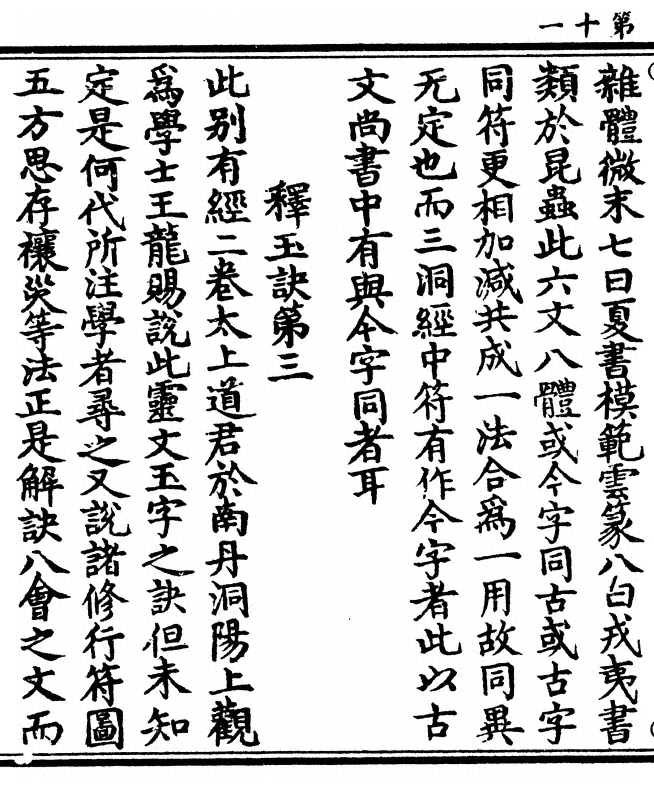 第十一
雜體微末七曰夏書模範雲篆八曰戎夷書
類於昆蟲此六文八體或今字同古或古字
同符更相加減共成一法合為一用故同異
无定也而三洞經中符有作今字者此以古
文尚書中有與今字同者耳
釋玉訣第三
此別有經二卷太上道君於南丹洞陽上觀
為學士王龍賜說此靈文玉字之訣但未知
定是何代所注學者尋之又說諸修行符圖
五方思存禳災等法正是解訣八會之文而